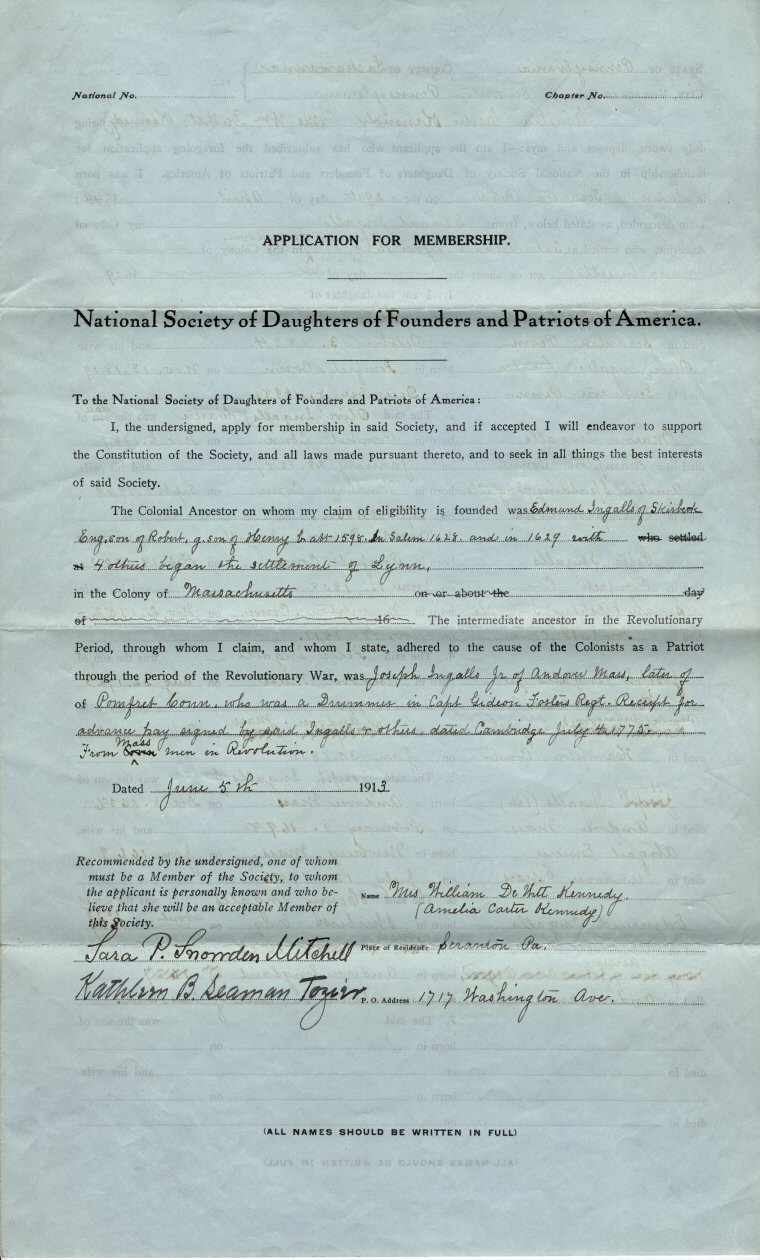 National No.
Chapter No.
APPLICATION FOR MEMBERSHIP.
National Society of Daughters of Founders and Patriots of America.
To the National Society of Daughters of Founders and Patriots of America:
I, the undersigned, apply for membership in said Society, and if accepted I will endeavor to support
the Constitution of the Society, and all laws made pursuant thereto, and to seek in all things the best interests
of said Society.
The Colonial Ancestor on whom my claim of eligibility is founded was Edmund Ingalls of Skirbeck
Eng. son of Robert, g. son of Henry b abt 1598. In Salem 1628. and in 1629 with who settled
at 4 others began the settlement of Lynn,
in the Colony of Massachusetts on or about the day
of 16 The intermediate ancestor in the Revolutionary
Period, through whom I claim, and whom I state, adhered to the cause of the Colonists as a Patriot
through the period of the Revolutionary War, was Joseph Ingalls Jr of Andover Mass, later of
of Pomfret Conn. who was a Drummer in Capt Gideon Fosters Regt. Receipt for
advance pay signed by said Ingalls & others, dated Cambridge July 4 1775.
From Conn Mass men in Revolution.
Dated June 5th 1913
Recommended by the undersigned, one of whom
must be a Member of the Society, to whom
the applicant is personally known and who be-
lieve that she will be an acceptable Member of
this Society.
Name Mrs William DeWitt Kennedy.
(Amelia Carter Kennedy)
Sara P. Snowden Mitchell
Place of Residence Scranton Pa.
Kathleen B. Seaman Tozier
P. O. Address 1717 Washington Ave.
(ALL NAMES SHOULD BE WRITTEN IN FULL)